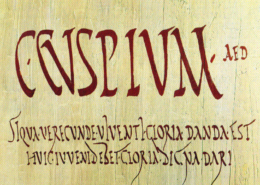 C·CVSPIVM·AED
SIQVA VERECVNDE VIVENTI GLORIA DANDA EST
HVIC IVVENI DEBET GLORIA DIGNA DARI